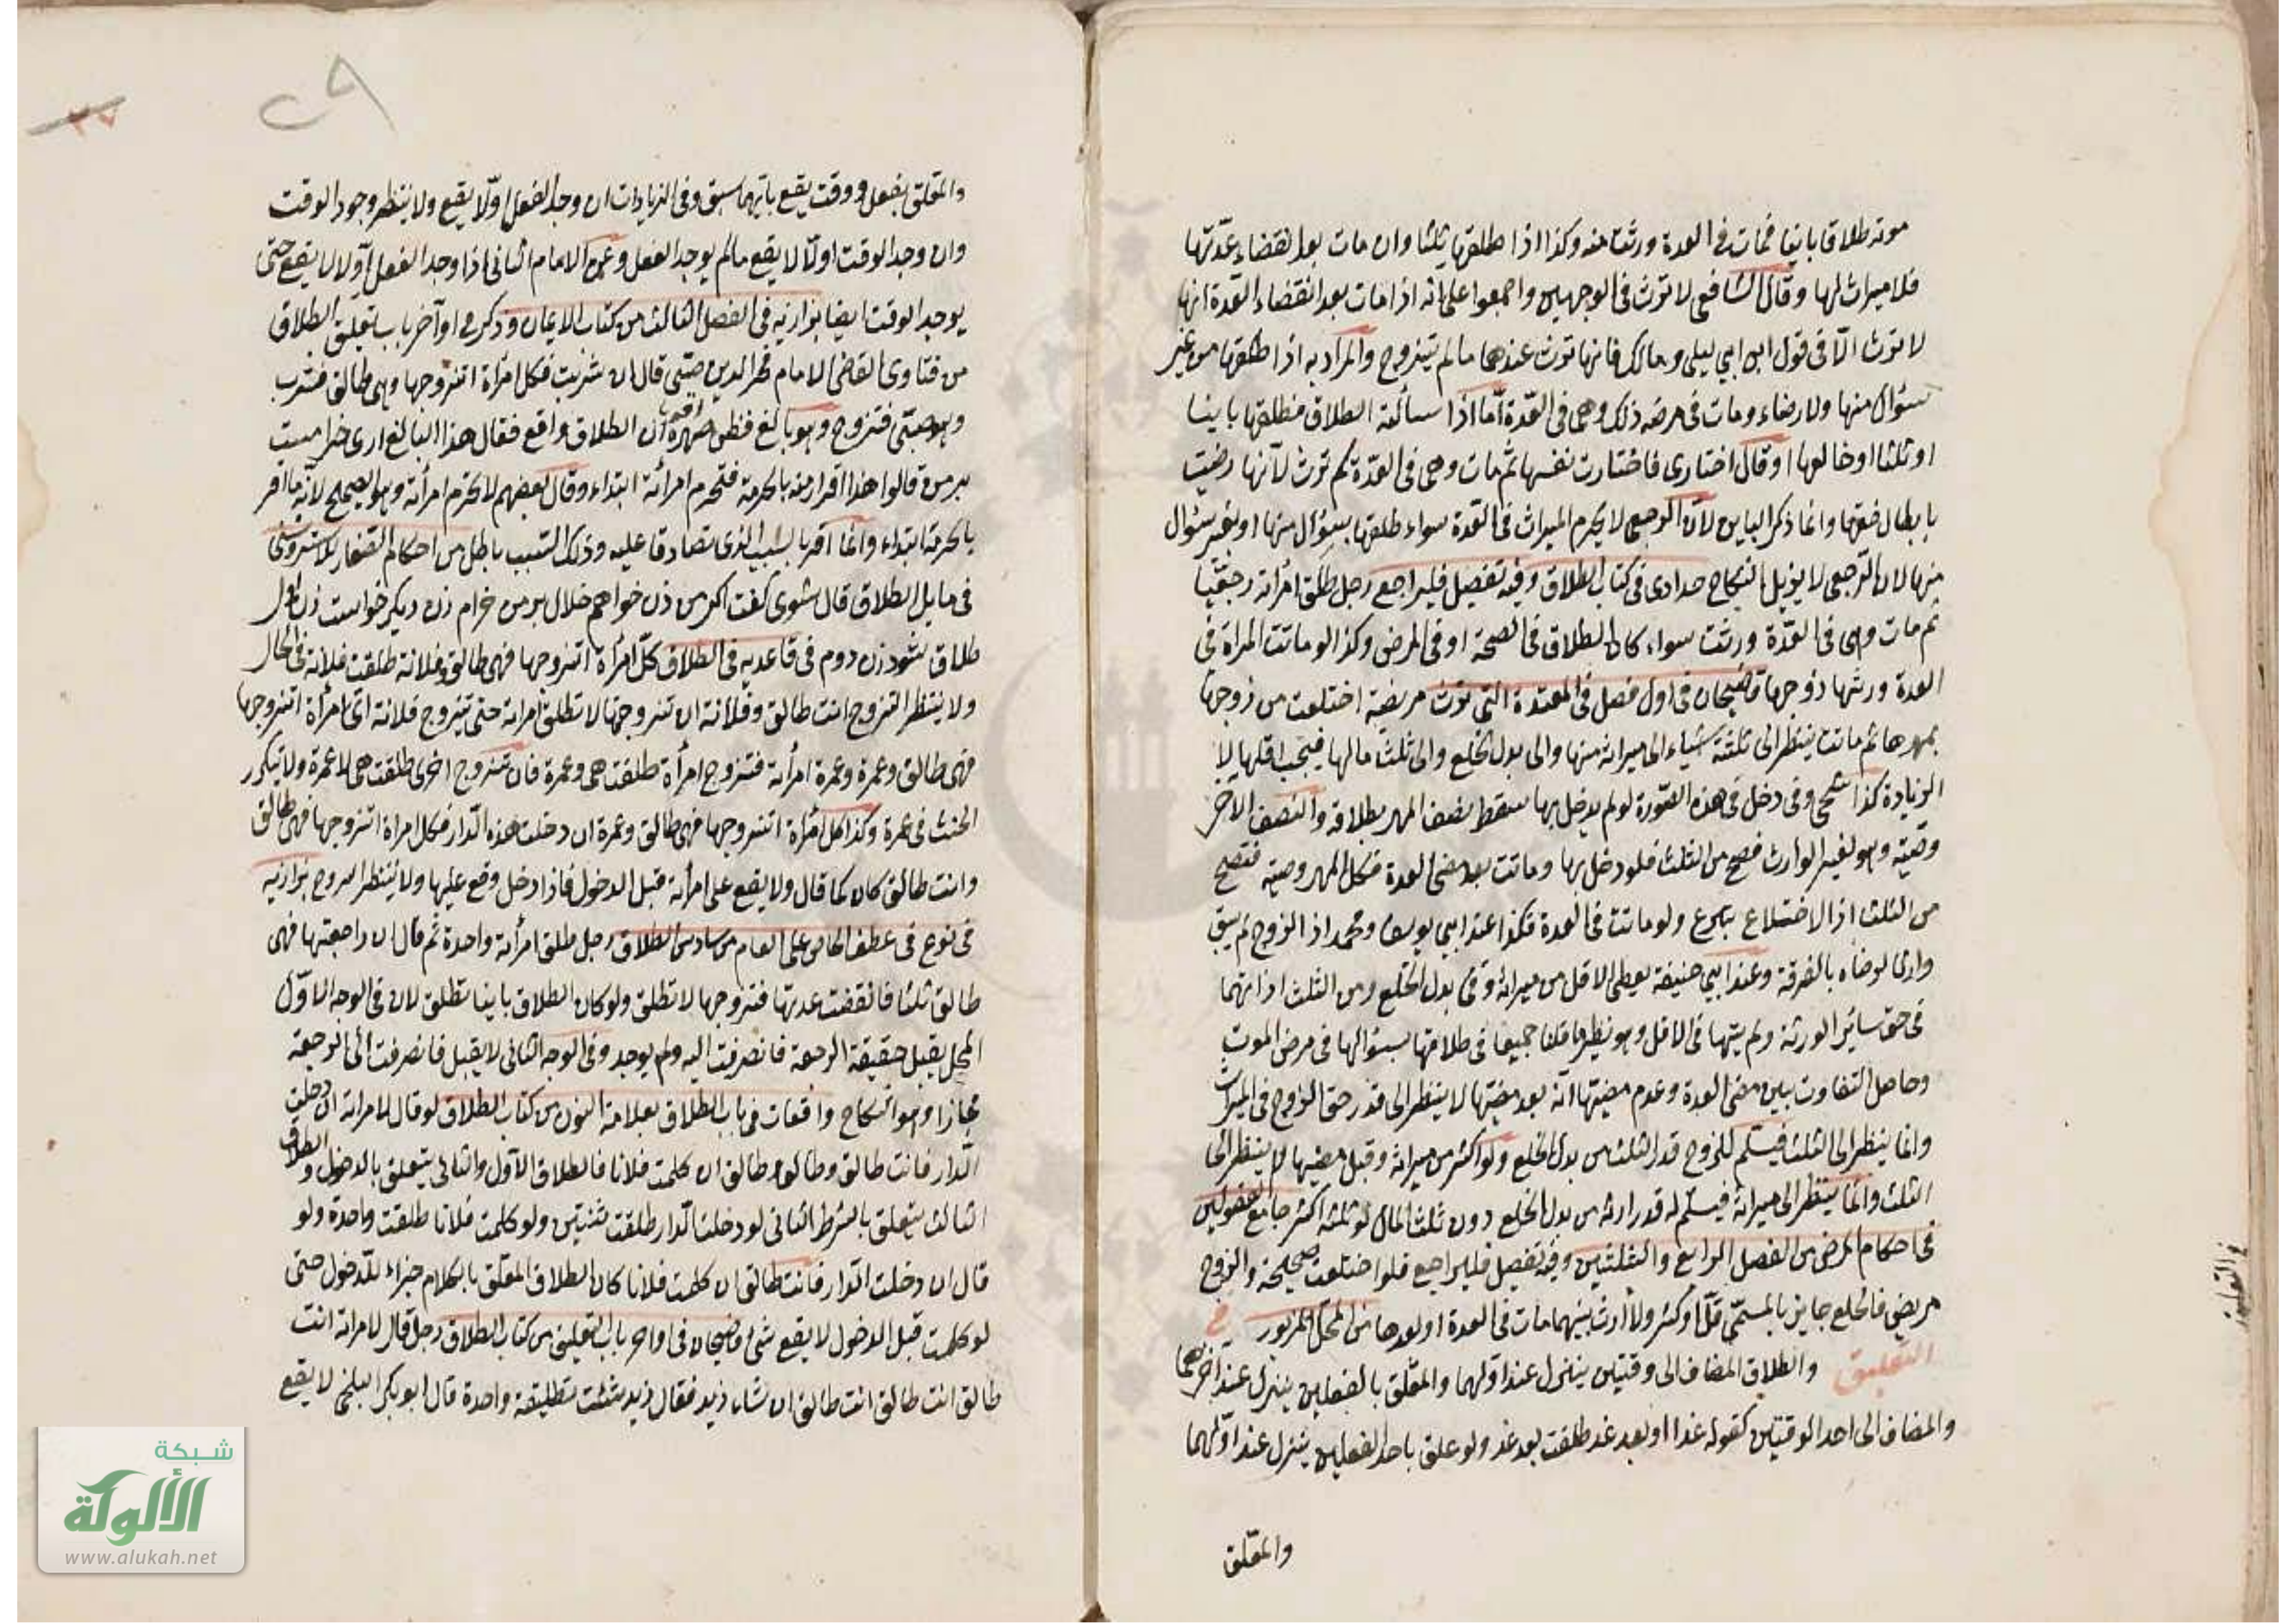 موته طلاقا باينا فمات في العدة ورثت منه وكذا اذا طلقها ثلثا وان مات بعد انقضاء عدّتها
فلا ميراث لها وقال الشافعي لا توث في الوجهين واجمعوا على انه اذا مات بعد انقضاء العدة انها
لا توث الّا في قول ابن ابي ليلى ومالك فانها توث عندهما ما لم تتزوج والمراد به اذا طلقها من غير
سئوال منها ولا رضاء ومات في مرضه ذلك وهي في العدّة امّا اذا سألته الطلاق فطلقها باينا
او ثلثا او خالعها او قال اختاري فاختارت نفسها ثم مات وهي في العدّة لم توث لأنها رضيت
بابطال حقها وانما ذكر الباين لأن الرجعي لا يحرم الميراث في العدة سواء طلقها بسؤال منها او بغير سئوال
منها لان الرجعي لا يزيل النكاح حدادى في كتاب الطلاق وفيه تفصيل فليراجع رجل طلق امرأته رجعيّا
ثم مات وهي في العدّة ورثت سواء كان الطلاق في الصحة او في المرض وكذا لو ماتت المرأة في
العدة ورثها زوجها قاضيخان في اول فصل في المعتدة التي توث مريضة اختلعت من زوجها
بمهرها ثم ماتت ينظر الى ثلثة اشياء الى ميراثه منها والى بدل الخلع والى ثلث مالها فيجب اقلها لا
الزيادة كذا وفى دخل في هذه الصورة لو لم يدخل بها سقط نصف المهر بطلاقه والنصف الآخر
وصيّة وهو لغير الوارث فصح من الثلث فلو دخل بها وماتت بعد مضى العدة فكل المهر وصية فتصح
من الثلث اذ الاختلاع تبرع ولو ماتت في العدة فكذا عند ابي يوسف ومحمد اذ الزوج لم يبق
وارثا لرضاه بالفرقة وعند ابي حنيفة يعطى الاقل من ميراثه ومن بدل الخلع ومن الثلث اذ اتهما
في حق سائر الورثة ولم يتهما في الاقل وهو نظير ما قلنا جميعا في طلاقها بسئوالها في مرض الموت
وحاصل التفاوت بين مضى العدة وعدم مضيّها انه بعد مضيّها لا ينظر الى قدر حق الزوج في الميراث
وانما ينظر الى الثلث فيسلّم للزوج قدر الثلث من بدل الخلع ولو اكثر من ميراثه وقبل مضيها لا ينظر الى
الثلث وانّما ينظر الى ميراثه فيسلّم له قدر ارثه من بدل الخلع دون ثلث المال لو ثلثه اكثر جامع الفصولين
في احكام المرضى من الفصل الرابع والثلثين وفيه تفصيل فليراجع فلو اختلعت صحيحة والزوج
مريض فالخلع جايز بالمسمّى قلّ او كثر ولا ارث بينهما مات في العدة او بعدها من المحل المزبور في
التعليق والطلاق المضاف الى وقتين ينزل عند اولهما والمعلّق بالفعلين ينزل عند آخرهما
والمضاف الى احد الوقتين كقوله غدا او بعد غد طلقت بعد غد ولو علق باحد الفعلين ينزل عند اوّلهما
والمعلّق
في التعليق
والمعلّق بفعل ووقت يقع بايّهما سبق وفي الزيادات ان وجد الفعل اوّلا يقع ولا ينتظر وجود الوقت
وان وجد الوقت اولّا لا يقع مالم يوجد الفعل وعن الامام الثاني اذا وجد الفعل اولا لا يقع حتّى
يوجد الوقت ايضا بزازيه في الفصل الثالث من كتاب الايمان وذكر في اوآخر باب تعليق الطلاق
من فتاوى القاضي الامام فخر الدين صبّى قال ان شربت فكل امرأة اتزوجها وهي طالق فشرب
وهو صبّى فتزوج وهو بالغ فظن صهره ان الطلاق واقع فقال هذا البالغ ارى حرامست
بر من قالوا هذا اقرار منه بالحرمة فتحرم امرأته ابتداء وقال بعضهم لا تحرم امرأته وهو الصحيح لأنه ما اقر
بالحرمة ابتداء وانّما اقر بالسبب الذي تصادقا عليه وذلك السّبب باطل من احكام الصغار للاستروشني
في مسايل الطلاق قال شوى كفت اكر من زن خواهم حلال بر من حرام زن ديكر خواست زن اول
طلاق نشود زن دوم في قاعديه في الطلاق كلّ امرأة اتزوجها فهي طالق وفلانة طلقت فلانة في الحال
ولا ينتظر التزوج انت طالق وفلانة ان تزوجتها لا تطلق امرأته حتى يتزوج فلانة اىّ امرأة اتزوجها
فهي طالق وعمرة وعمرة امرأته فتزوج امرأة طلقت هي وعمرة فان تزوج اخرى طلقت هي لا عمرة ولا يتكرر
الحنث في عمرة وكذا كل امرأة اتزوجها فهي طالق وعمرة ان دخلت هذه الدّار فكل امرأة اتزوجها فهي طالق
وانت طالق كان كما قال ولا يقع على امرأته قبل الدخول فاذا دخل وقع عليها ولا ينتظر التزوج بزازيه
في نوع في عطف الخاص على العام من سادس الطلاق رجل طلق امرأته واحدة ثم قال ان راجعتها فهي
طالق ثلثا فانقضت عدتها فتزوجها لا تطلق ولو كان الطلاق باينا تطلق لان في الوجه الاوّل
المحل يقبل حقيقة الرجعة فانصرفت اليه ولم يوجد وفي الوجه الثاني لا يقبل فانصرفت الى الرجعة
مجازا وهو النكاح واقعات في باب الطلاق بعلامة النون من كتاب الطلاق لو قال لامرأته ان دخلت
الدّار فانت طالق وطالق وطالق ان كلمت فلانا فالطلاق الاول والثاني يتعلق بالدخول والطلاق
الثالث يتعلق بالشرط الثاني لو دخلت الدّار طلقت ثنتين ولو كلمت فلانا طلقت واحدة ولو
قال ان دخلت الدّار فانت طالق ان كلمت فلانا كان الطلاق المعلّق بالكلام جزاء للدّخول حتى
لو كلمت قبل الدخول لا يقع شئ قاضيخان في اواخر باب التعليق من كتاب الطلاق رجل قال لامرأته انت
طالق انت طالق انت طالق ان شاء زيد فقال زيد شئت تطليقة واحدة قال ابو بكر البلخي لا يقع
شبكة
الألوكة
www.alukah.net